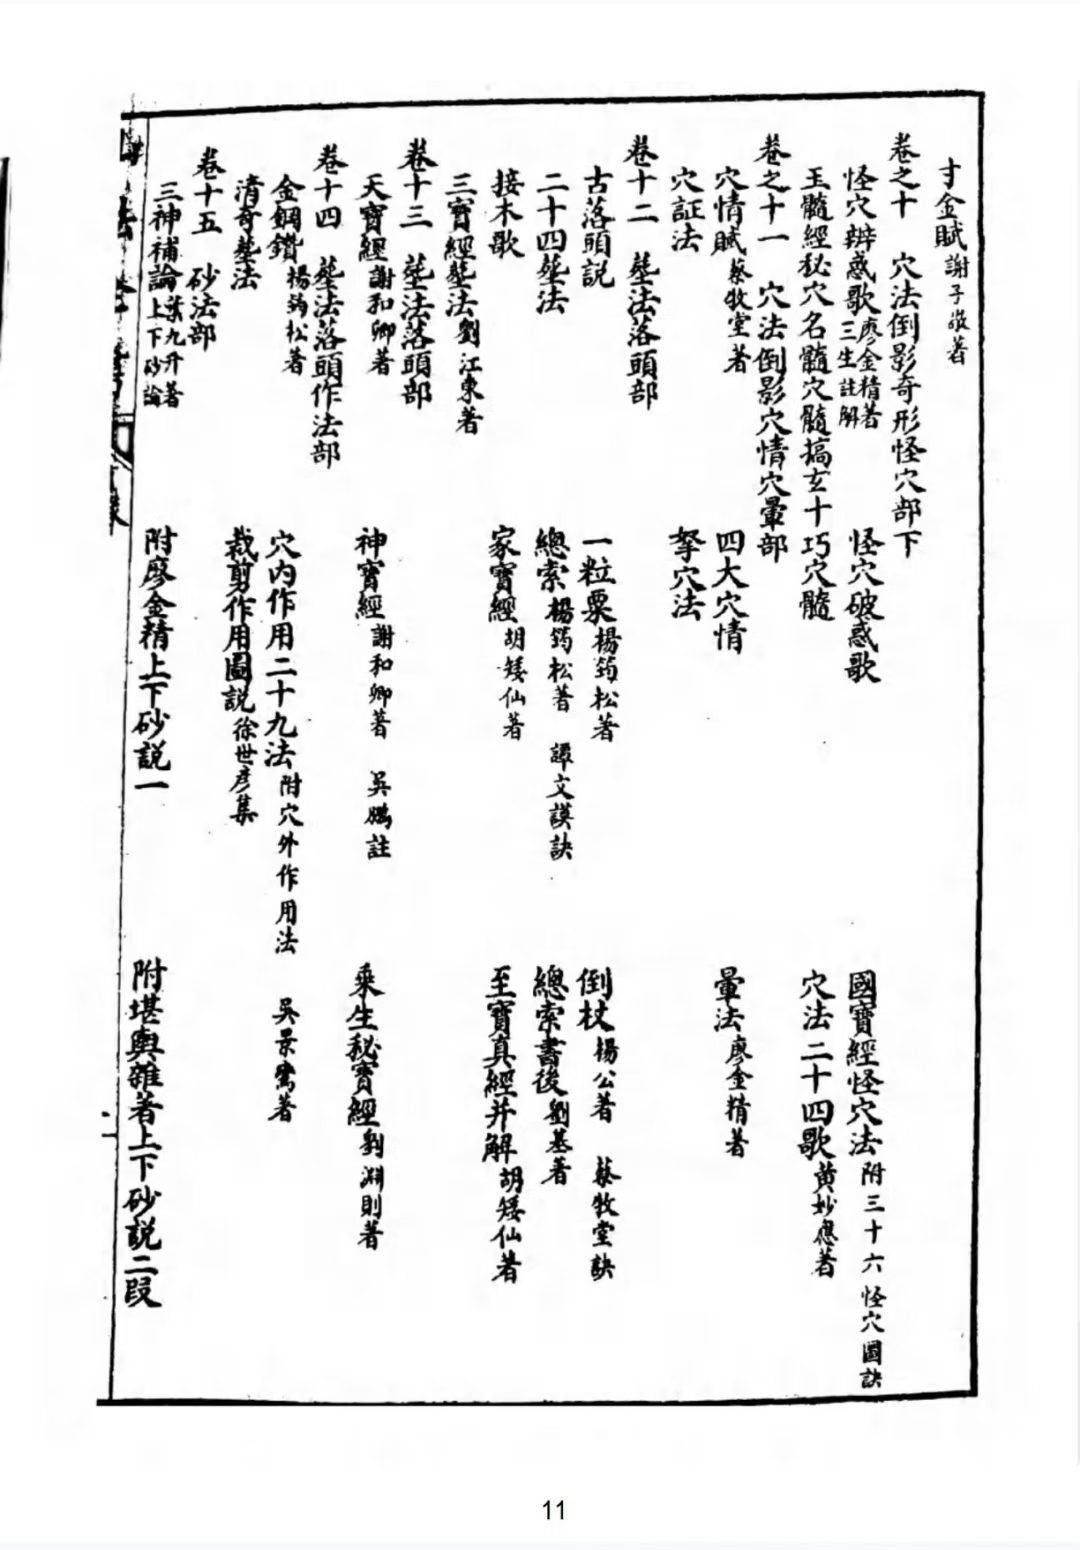 寸金賦 謝子敬著
卷之十 穴法倒影奇形怪穴部下
怪穴辨惑歌 廖金精著 三生註解 怪穴破惑歌 國寶經怪穴法 附三十六怪穴圖訣
玉髓經秘穴名髓穴髓搞玄十巧穴髓 穴法二十四歌 黄妙應著
卷之十一 穴法倒影穴情穴暈部
穴情賦 蔡牧堂著 四大穴情 暈法 廖金精著
穴証法 拏穴法
卷十二 塟法落頭部
古落頭説 一粒粟 楊筠松著 倒杖 楊公著 蔡牧堂訣
二十四塟法 總索 楊筠松著 譚文謨訣 總索書後 劉基著
接木歌 家寶經 胡矮仙著 至寶真經并解 胡矮仙著
三寶經塟法 劉江東著
卷十三 塟法落頭部
天寶經 謝和卿著 神寶經 謝和卿著 吳鵬註 乘生秘寶經 劉淵則著
卷十四 塟法落頭作法部
金鋼鑽 楊筠松著 穴内作用二十九法 附穴外作用法 吳景鸞著
清奇塟法 裁剪作用圖説 徐世彦集
卷十五 砂法部
三神補論 葉九升著 上下砂論 附廖金精上下砂説一 附堪輿雜著上下砂説二段
11